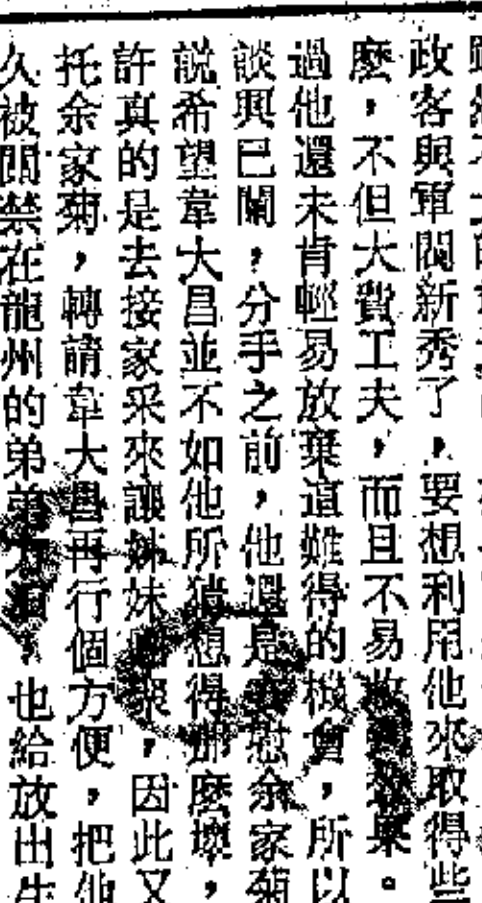 政客與軍閥新秀了，要想利用他來取得些
麼，不但大費工夫，而且不易收到效果。
過他還未肯輕易放棄這難得的機會，所以
談興已闌，分手之前，他還是安慰余家菊
説希望韋大昌並不如他所猜想得那麼壞，
許真的是去接家采來讓姊妹團聚，因此又
托余家菊，轉請韋大昌再行個方便，把他
久被關禁在龍州的弟弟　也給放出